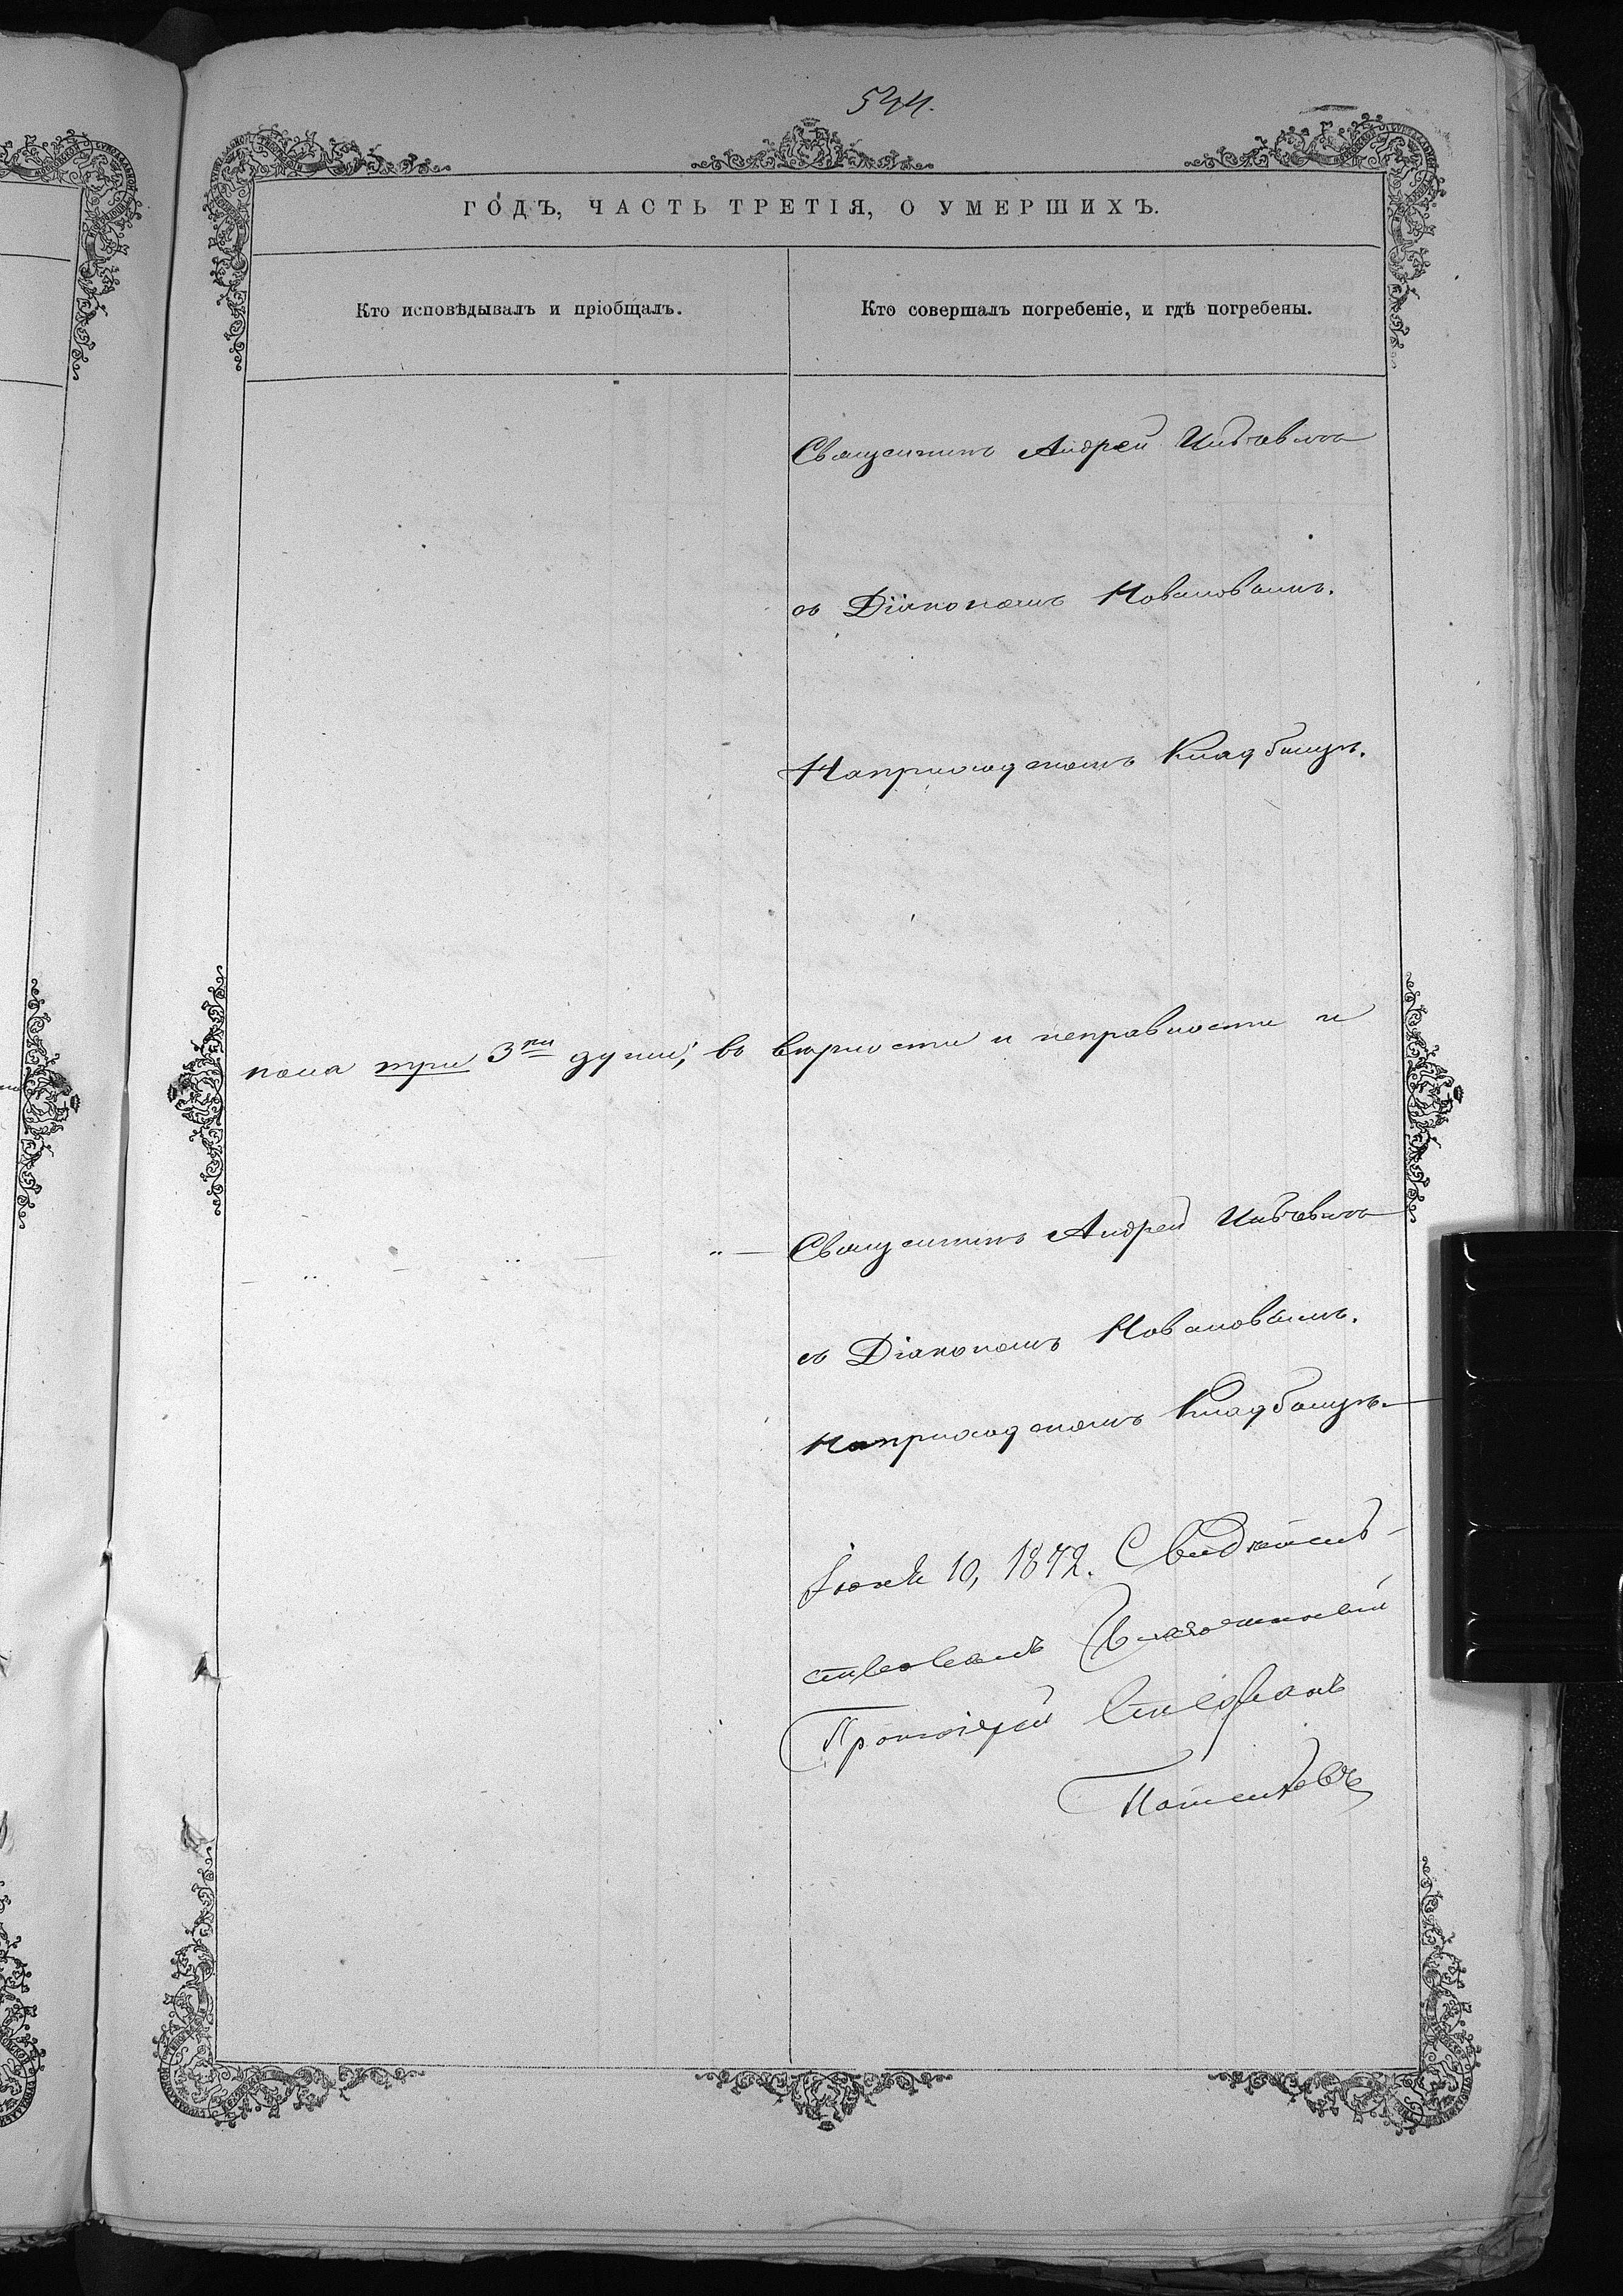 544.
ГОДЪ, ЧАСТЬ ТРЕТІЯ, О УМЕРШИХЪ.
Кто исповѣдывалъ и пріобщалъ.
Кто совершалъ погребеніе, и гдѣ погребены.
Священникъ Андрей
съ Діакономъ
На приходскомъ Кладбищѣ.
пола три 3ри души; въ вѣрности и исправности и
Священникъ Андрей
съ Діакономъ
На приходскомъ Кладбищѣ.
Іюня 10, 1872. Свидѣтель-
ствовалъ Благочинный
Протоіерей Стефанъ